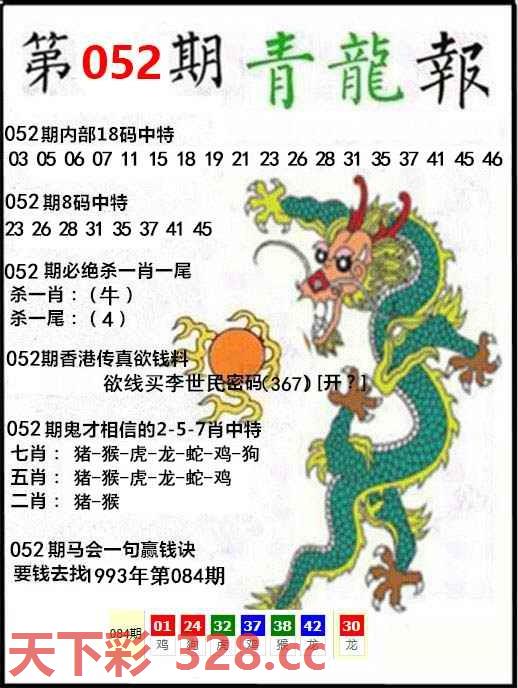 第052期青龍報
052期内部18码中特
03 05 06 07 11 15 18 19 21 23 26 28 31 35 37 41 45 46
052期8码中特
23 26 28 31 35 37 41 45
052期必绝杀一肖一尾
杀一肖:(牛)
杀一尾:(4)
052期香港传真欲钱料
欲线买李世民密码(367)[开?]
052期鬼才相信的2-5-7肖中特
七肖:猪-猴-虎-龙-蛇-鸡-狗
五肖:猪-猴-虎-龙-蛇-鸡
二肖:猪-猴
052期马会一句赢钱诀
要钱去找1993年第084期
084期 01 24 32 37 38 42 30
鸡 狗 虎 鸡 猴 龙 龙
天下彩 328.cc